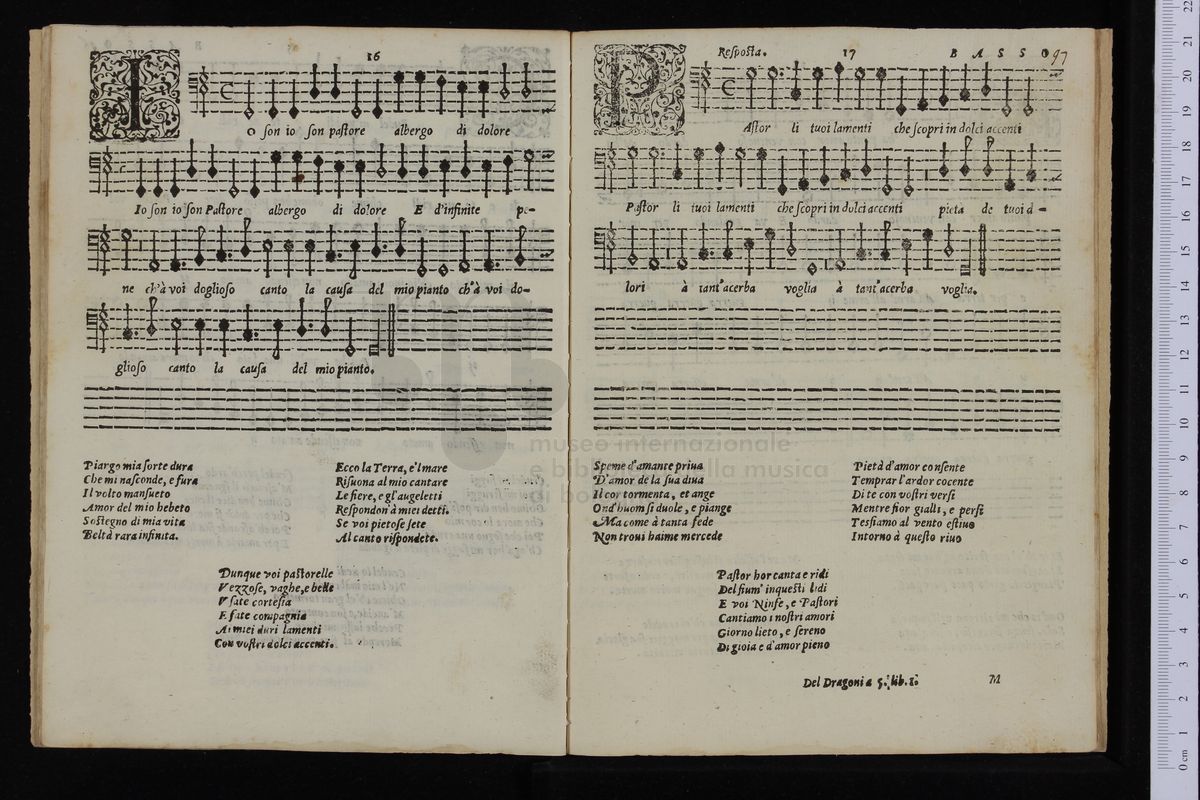 16
I
O ſon io ſon paſtore albergo di dolore
Io ſon io ſon Paſtore albergo di dolore E d'infinite pe-
ne ch'à voi doglioſo canto la cauſa del mio pianto ch'à voi do-
glioſo canto la cauſa del mio pianto.
Piargo mia ſorte dura
Che mi naſconde, e fura
Il volto manſueto
Amor del mio hebeto
Soſtegno di mia vita
Beltà rara infinita.
Ecco la Terra, e'l mare
Riſuona al mio cantare
Le fiere, e gl'augeletti
Reſpondon à miei detti.
Se voi pietoſe ſete
Al canto riſpondete.
Dunque voi paſtorelle
Vezzoſe, vaghe, e belle
Vſate corteſia
E fate compagnia
Ai miei duri lamenti
Con voſtri dolci accenti.
Reſpoſta. 17 BASSO 97
P
Aſtor li tuoi lamenti che ſcopri in dolci accenti
Paſtor li tuoi lamenti che ſcopri in dolci accenti pieta de tuoi d-
lori à tant'acerba voglia à tant'acerba voglia.
Speme d'amante priua
D'amor de la ſua diua
Il cor tormenta, et ange
Ond'huom ſi duole, e piange
Ma come à tanta fede
Non troui haime mercede
Pietà d'amor conſente
Temprar l'ardor cocente
Di te con voſtri verſi
Mentre fior gialli, e perſi
Teſſiamo al vento eſtiuo
Intorno à queſto riuo
Paſtor hor canta e ridi
Del fium' in queſti lidi
E voi Ninfe, e Paſtori
Cantiamo i noſtri amori
Giorno lieto, e ſereno
Di gioia e d'amor pieno
Del Dragoni a 5. lib. 1. M
museo internazionale
e biblioteca della musica
di bologna
0 cm 1 2 3 4 5 6 7 8 9 10 11 12 13 14 15 16 17 18 19 20 21 22